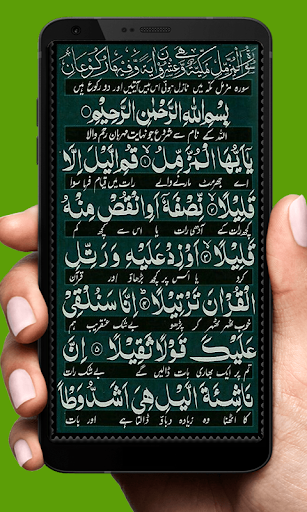 سورہ مزمل مکہ میں نازل ہوئی اس میں آیتیں اور دو رکوع ہیں
بِسْمِ اللهِ الرَّحْمٰنِ الرَّحِيْمِ
اللہ کے نام سے شروع جو نہایت مہربان رحم والا
يٰٓاَيُّهَا الْمُزَّمِّلُ ۱ قُمِ الَّيْلَ اِلَّا
اے جھرمٹ مارنے والے رات میں قیام فرما سوا
قَلِيْلًا ۲ نِّصْفَهٗٓ اَوِ انْقُصْ مِنْهُ
کچھ رات کے آدھی رات یا اس سے کچھ کم
قَلِيْلًا ۳ اَوْ زِدْ عَلَيْهِ وَرَتِّلِ
کرو یا اس پر کچھ بڑھاؤ اور قرآن
الْقُرْاٰنَ تَرْتِيْلًا ۴ اِنَّا سَنُلْقِيْ
خوب ٹھہر ٹھہر کر پڑھو بےشک عنقریب ہم
عَلَيْكَ قَوْلًا ثَقِيْلًا ۵ اِنَّ
تم پر ایک بھاری بات ڈالیں گے بےشک رات
نَاشِئَةَ الَّيْلِ هِيَ اَشَدُّ وَطْاً
کا اٹھنا وہ زیادہ دباؤ ڈالتا ہے اور بات